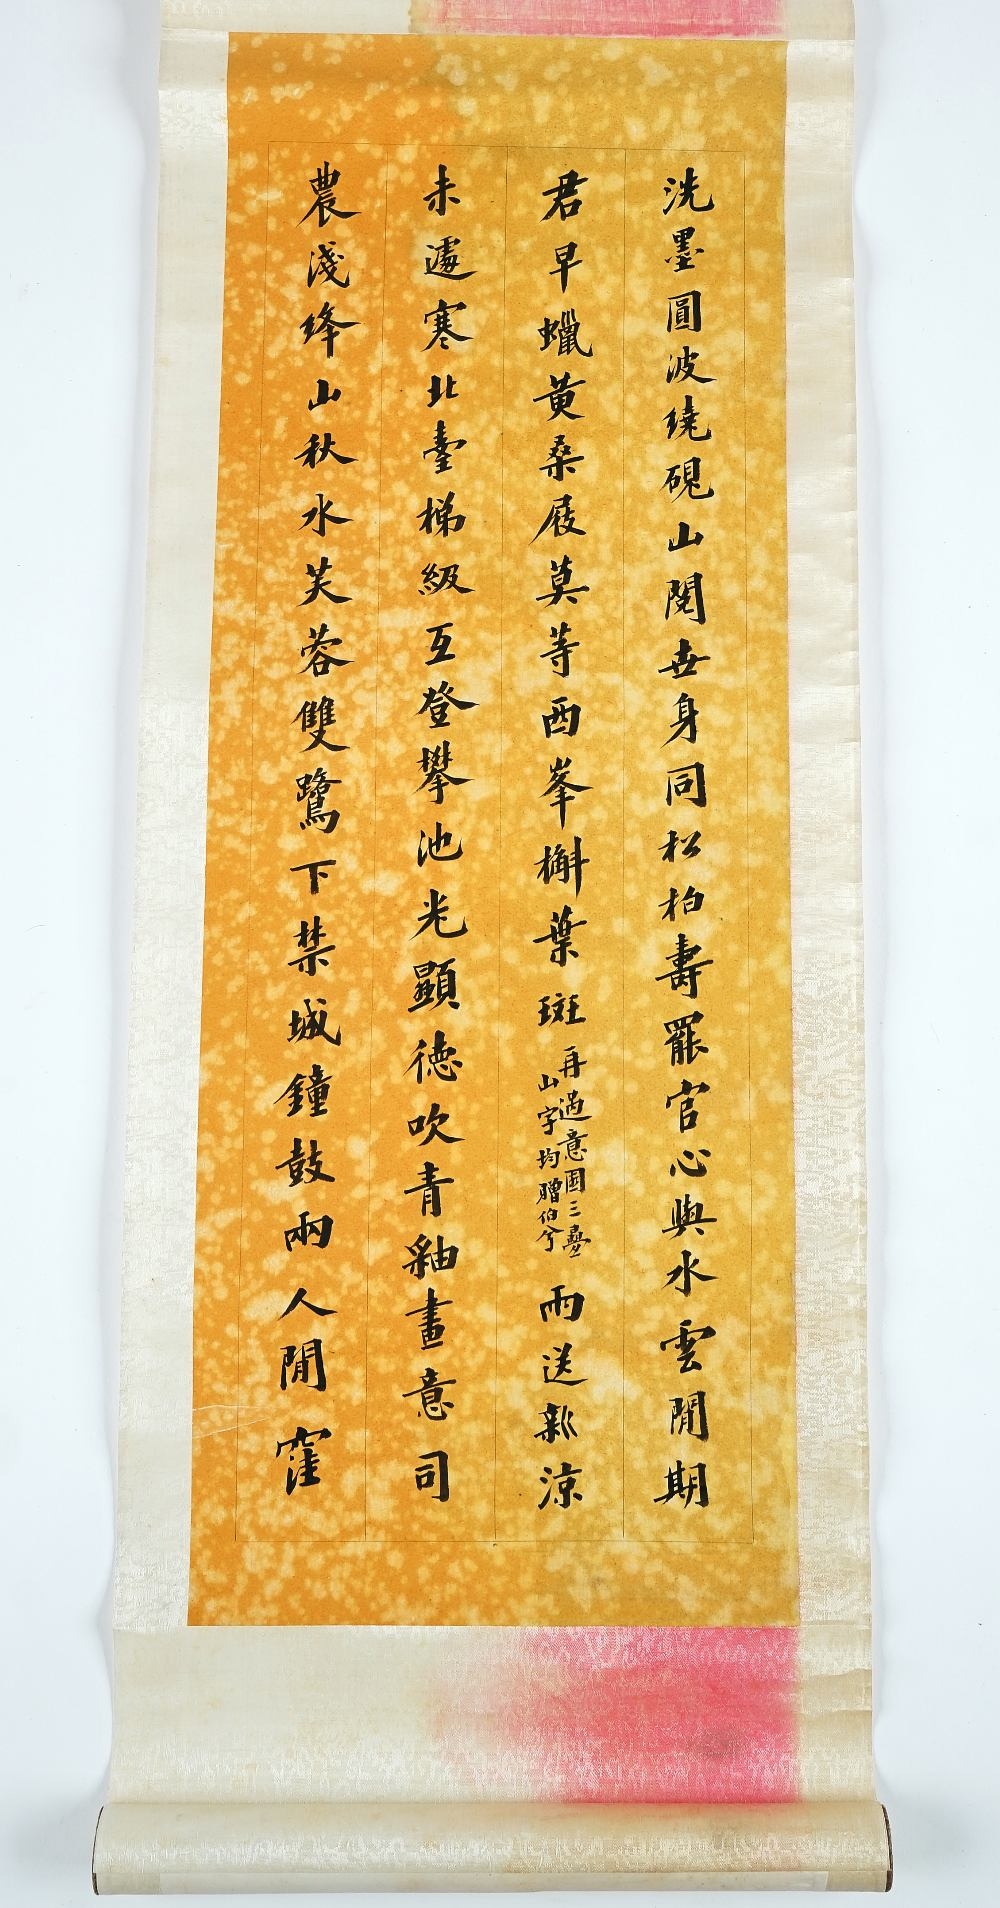 洗墨圓波繞硯山閱世身同松柏壽罷官心與水雲閒期
君早蠟黃桑屐莫等西峯槲葉斑再過意園三疊山字均贈伯兮雨送新涼
未遽寒北臺梯級互登攀池光顯德吹青釉畫意司
農淺絳山秋水芙蓉雙鷺下禁城鐘鼓兩人閒窪